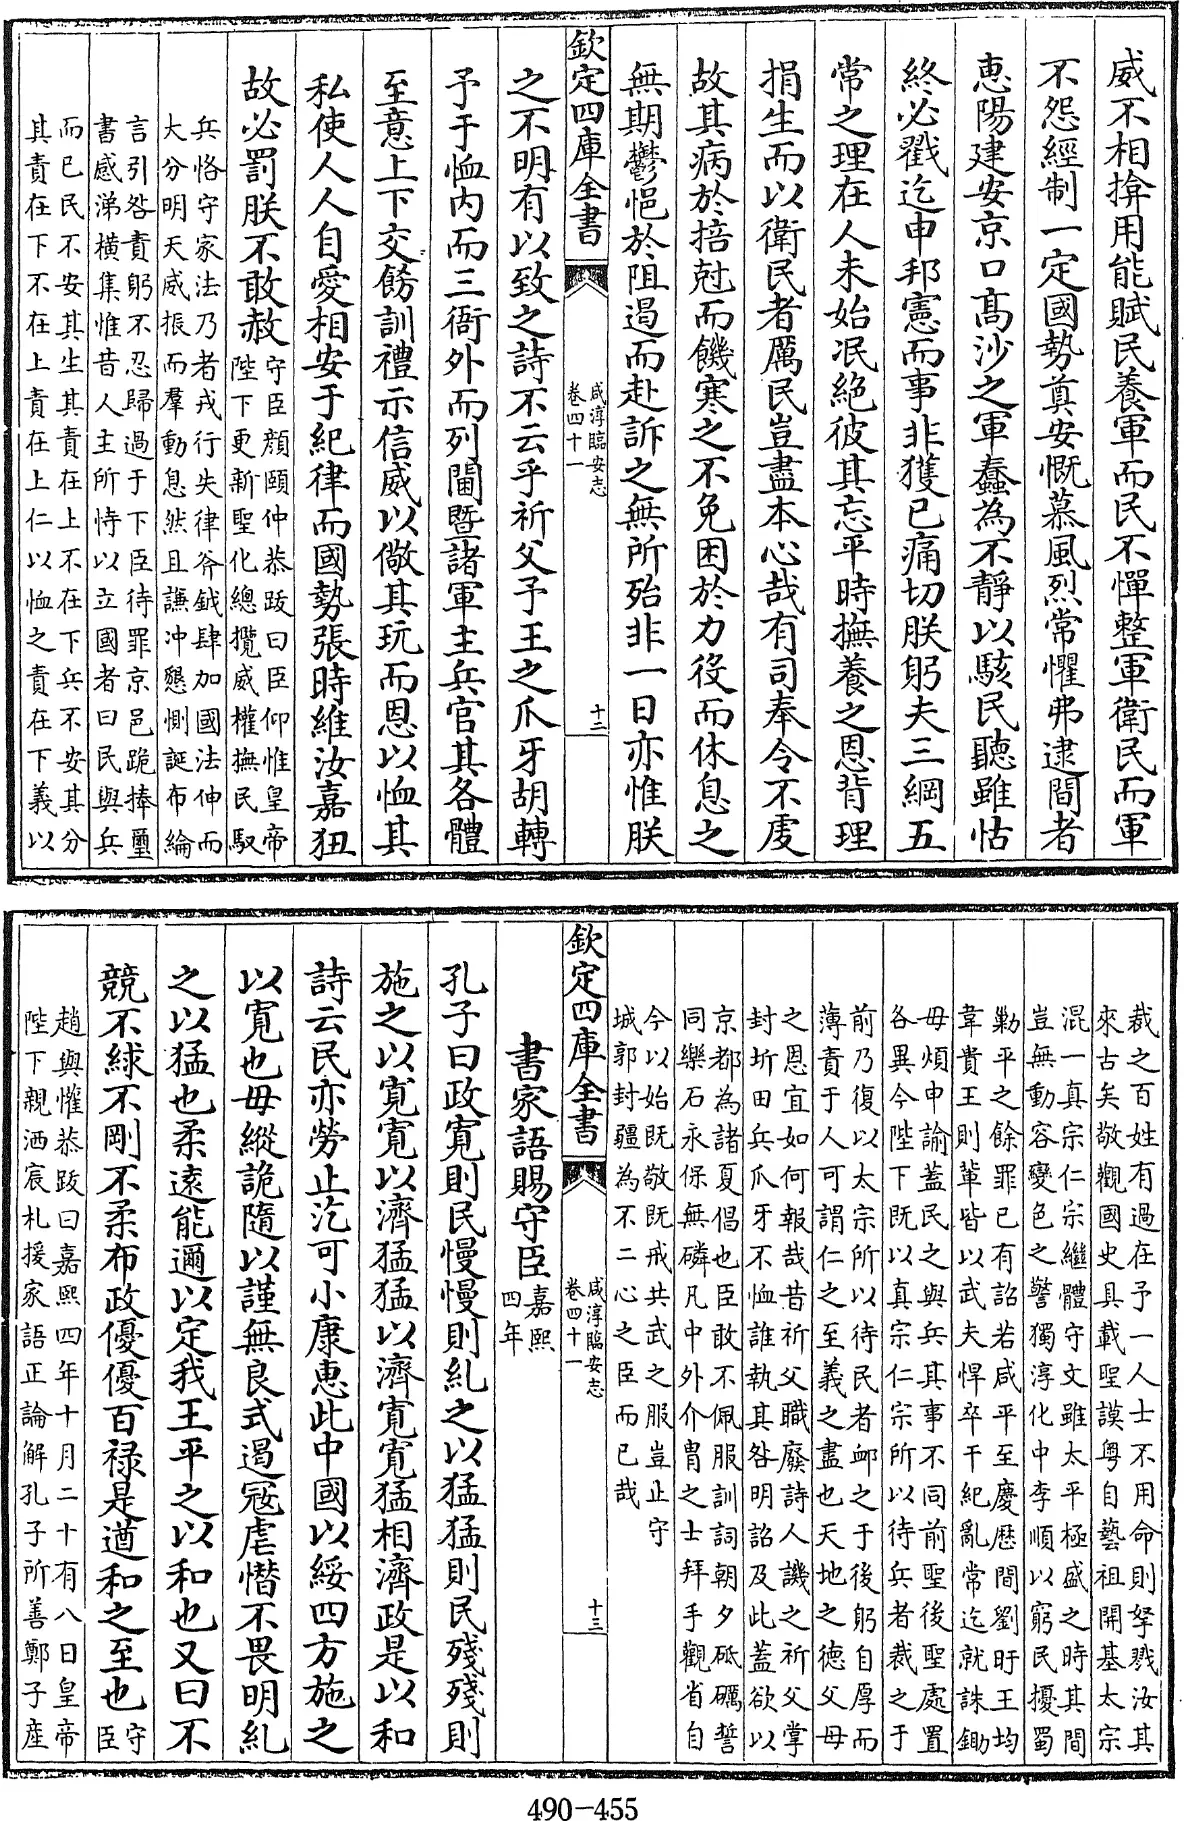 威不相揜用能賦民養軍而民不憚整軍衛民而軍
不怨經制一定國勢奠安慨慕風烈常懼弗逮間者
惠陽建安京口髙沙之軍蠢為不靜以駭民聽雖怙
終必戮迄申邦憲而事非獲已痛切朕躬夫三綱五
常之理在人未始泯絶彼其忘平時撫養之恩背理
捐生而以衛民者厲民豈盡本心哉有司奉令不䖍
故其病於掊尅而饑寒之不免困於力役而休息之
無期鬱悒於阻遏而赴訴之無所殆非一日亦惟朕
欽定四庫全書
咸淳臨安志
卷四十一
十二
之不明有以致之詩不云乎祈父予王之爪牙胡轉
予于恤内而三衙外而列閫暨諸軍主兵官其各體
至意上下交飭訓禮示信威以儆其玩而恩以恤其
私使人人自愛相安于紀律而國勢張時維汝嘉狃
故必罰朕不敢赦
守臣顔頤仲恭跋曰臣仰惟皇帝
陛下更新聖化總攬威權撫民馭
兵恪守家法乃者戎行失律斧鉞肆加國法伸而
大分明天威振而羣動息然且謙沖懇惻誕布綸
言引咎責躬不忍歸過于下臣待罪京邑跪捧璽
書感涕橫集惟昔人主所恃以立國者曰民與兵
而已民不安其生其責在上不在下兵不安其分
其責在下不在上責在上仁以恤之責在下義以
裁之百姓有過在予一人士不用命則孥戮汝其
來古矣敬觀國史具載聖謨粤自藝祖開基太宗
混一真宗仁宗繼體守文雖太平極盛之時其間
豈無動容變色之警獨淳化中李順以窮民擾蜀
勦平之餘罪已有詔若咸平至慶厯間劉旴王均
韋貴王則輩皆以武夫悍卒干紀亂常迄就誅鋤
毋煩申諭蓋民之與兵其事不同前聖後聖處置
各異今陛下既以真宗仁宗所以待兵者裁之于
前乃復以太宗所以待民者䘏之于後躬自厚而
薄責于人可謂仁之至義之盡也天地之德父母
之恩宜如何報哉昔祈父職廢詩人譏之祈父掌
封圻田兵爪牙不恤誰執其咎明詔及此蓋欲以
京都為諸夏倡也臣敢不佩服訓詞朝夕砥礪誓
同樂石永保無磷凡中外介胄之士拜手觀省自
今以始既敬既戒共武之服豈止守
城郭封疆為不二心之臣而已哉
欽定四庫全書
咸淳臨安志
卷四十一
十三
書家語賜守臣
嘉熙
四年
孔子曰政寛則民慢慢則糺之以猛猛則民殘殘則
施之以寛寛以濟猛猛以濟寛寛猛相濟政是以和
詩云民亦勞止汔可小康惠此中國以綏四方施之
以寛也毋縱詭隨以謹無良式遏寇虐憯不畏明糺
之以猛也柔遠能邇以定我王平之以和也又曰不
競不絿不剛不柔布政優優百禄是遒和之至也
守
臣
趙與懽恭跋曰嘉熙四年十月二十有八日皇帝
陛下親洒宸札援家語正論解孔子所善鄭子産
490-455